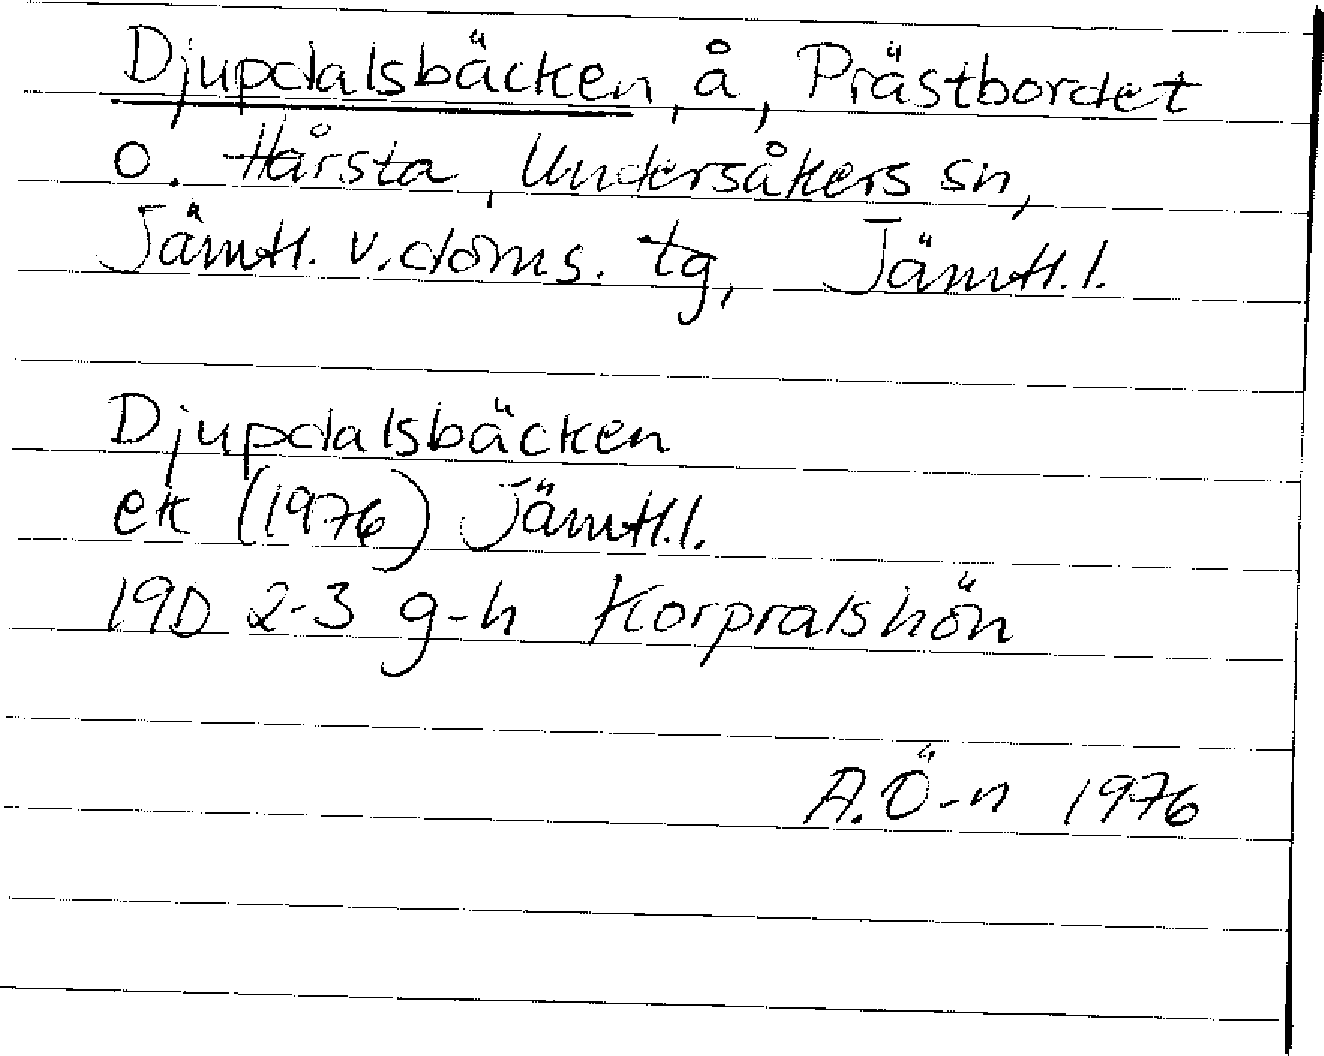 Djupdalsbäcken, å, Prästbordet
o. Hårsta, Undersåkers sn,
Jämtl. v. doms. tg, Jämtl. l.
Djupdalsbäcken
ek (1976) Jämtl. l.
19D 2-3 g-h Korpralshön
A. Ö-n 1976